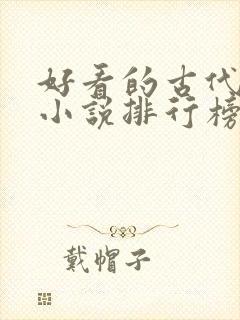 好看的古代
小说排行榜
戴帽子